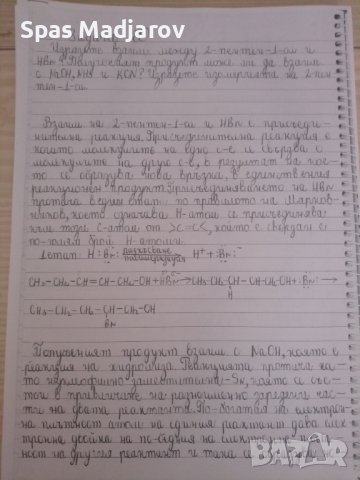 Spas Madjarov
Изразете взаим. между 2-пентен-1-ол и
HBr? Полученият продукт може ли да взаим.
с NaOH, NH3 и KCN? Изразете изомерията на 2-пен-
тен-1-ол.
Взаим. на 2-пентен-1-ол и HBr е присъеди-
нителна реакция. Присъединителна реакция е
когато молекулите на едно с-во се свързва с
молекулите на друго с-во, в резултат на кое-
то се образува нова връзка, в единствения
реакционен продукт. Присъединяването на HBr
протича в един етап по правилото на Марков-
ников, което означава H-атом се присъединява
към този C-атом от >C=C<, който е свързан с
по-голям брой H-атоми.
I етап: H:Br: H⁺ + :Br:⁻
CH3-CH2-CH=CH-CH2-OH + HBr → CH3-CH2-CH-CH-CH2-OH + Br: →
H
CH3-CH2-CH2-CH-CH2-OH
Br
Полученият продукт взаим. с NaOH, което е
реакция на хидролиза. Реакцията протича ка-
то нуклеофилно заместителна-SN, която се със-
тои в привличане на разноименно заредени час-
ти на двата реактанта. По-богатия на електрон-
на плътност атом на единия реактант дава елек-
тронна двойка на по-бедния на електронна плът-
ност на другия реактант и така се
bazar.bg